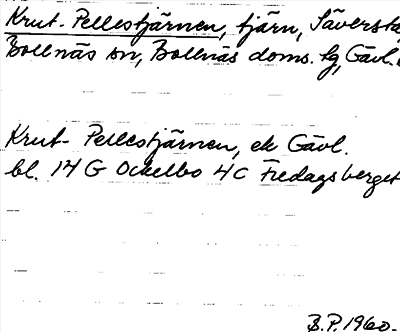 Krut-Pellestjärnen, tjärn, Säversta
Bollnäs sn, Bollnäs doms. tg, Gävl.
Krut-Pellestjärnen, ek Gävl.
bl. 14 G Ockelbo 4C Fredagsberget
B.P. 1960.